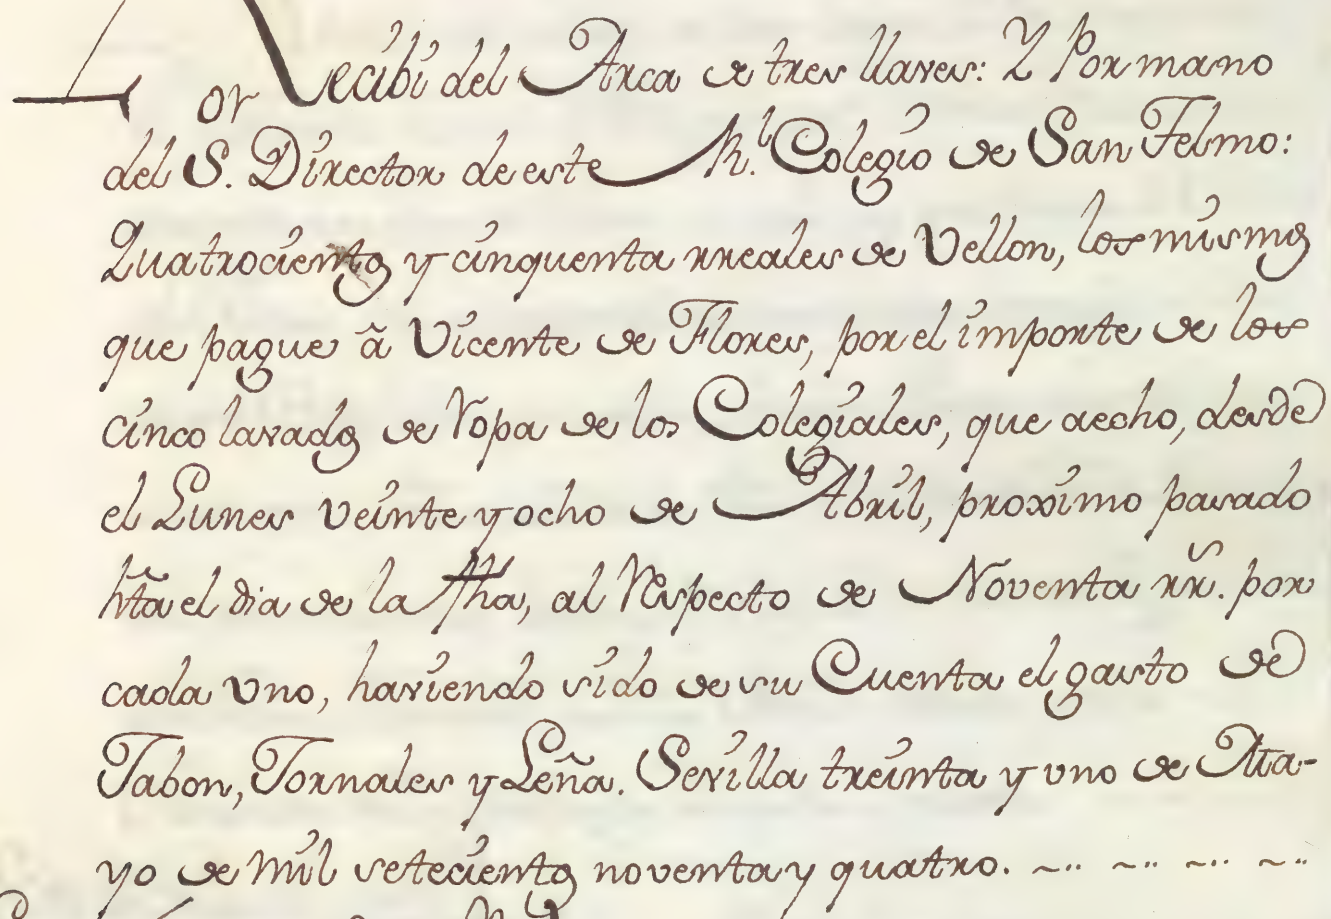 or Recibi del Arca de tres llaves: Y Por mano
del S. Director de este Rl. Colegio de San Telmo:
Quatrocientos y cinquenta rreales de Vellon, los mismos
que pague â Vicente de Flores, por el importe de los
cinco lavados de ropa de los Colegiales, que aecho, desde
el Lunes veinte y ocho de Abril, proximo pasado
hta el dia de la fha, al Respecto de Noventa rr.s por
cada vno, haviendo sido de su Cuenta el gasto de
Jabon, Jornales y Leña. Sevilla treinta y vno de Ma-
yo de mil setecientos noventa y quatro.